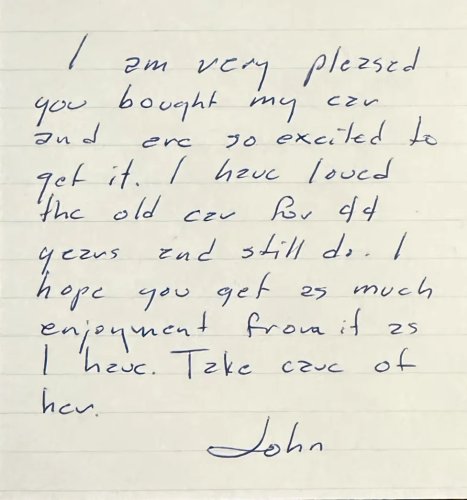 I am very pleased
you bought my car
and are so excited to
get it. I have loved
the old car for 44
years and still do. I
hope you get as much
enjoyment from it as
I have. Take care of
her.
John